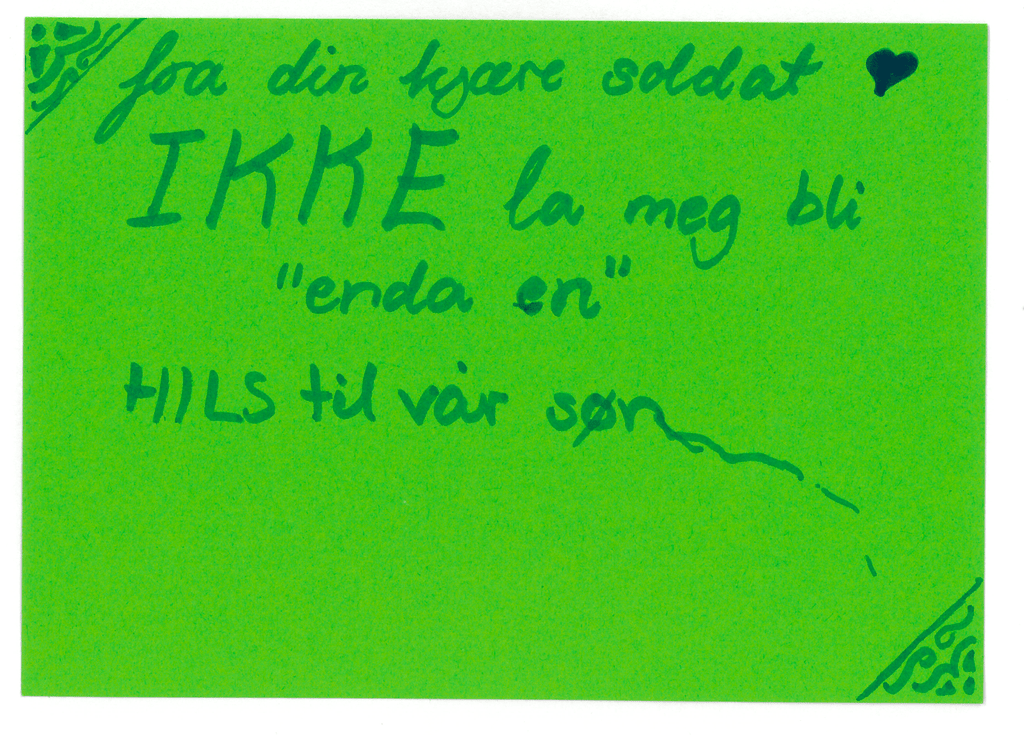 fra din kjære soldat ♥
IKKE la meg bli
"enda en"
HILS til vår søn